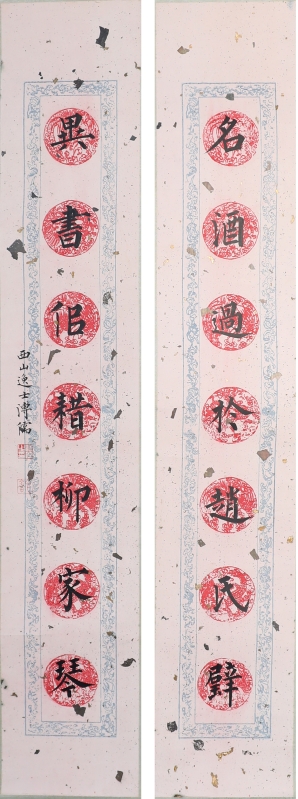 名酒過扵趙氏璧
異書佀耤柳家琴
西山逸士溥儒